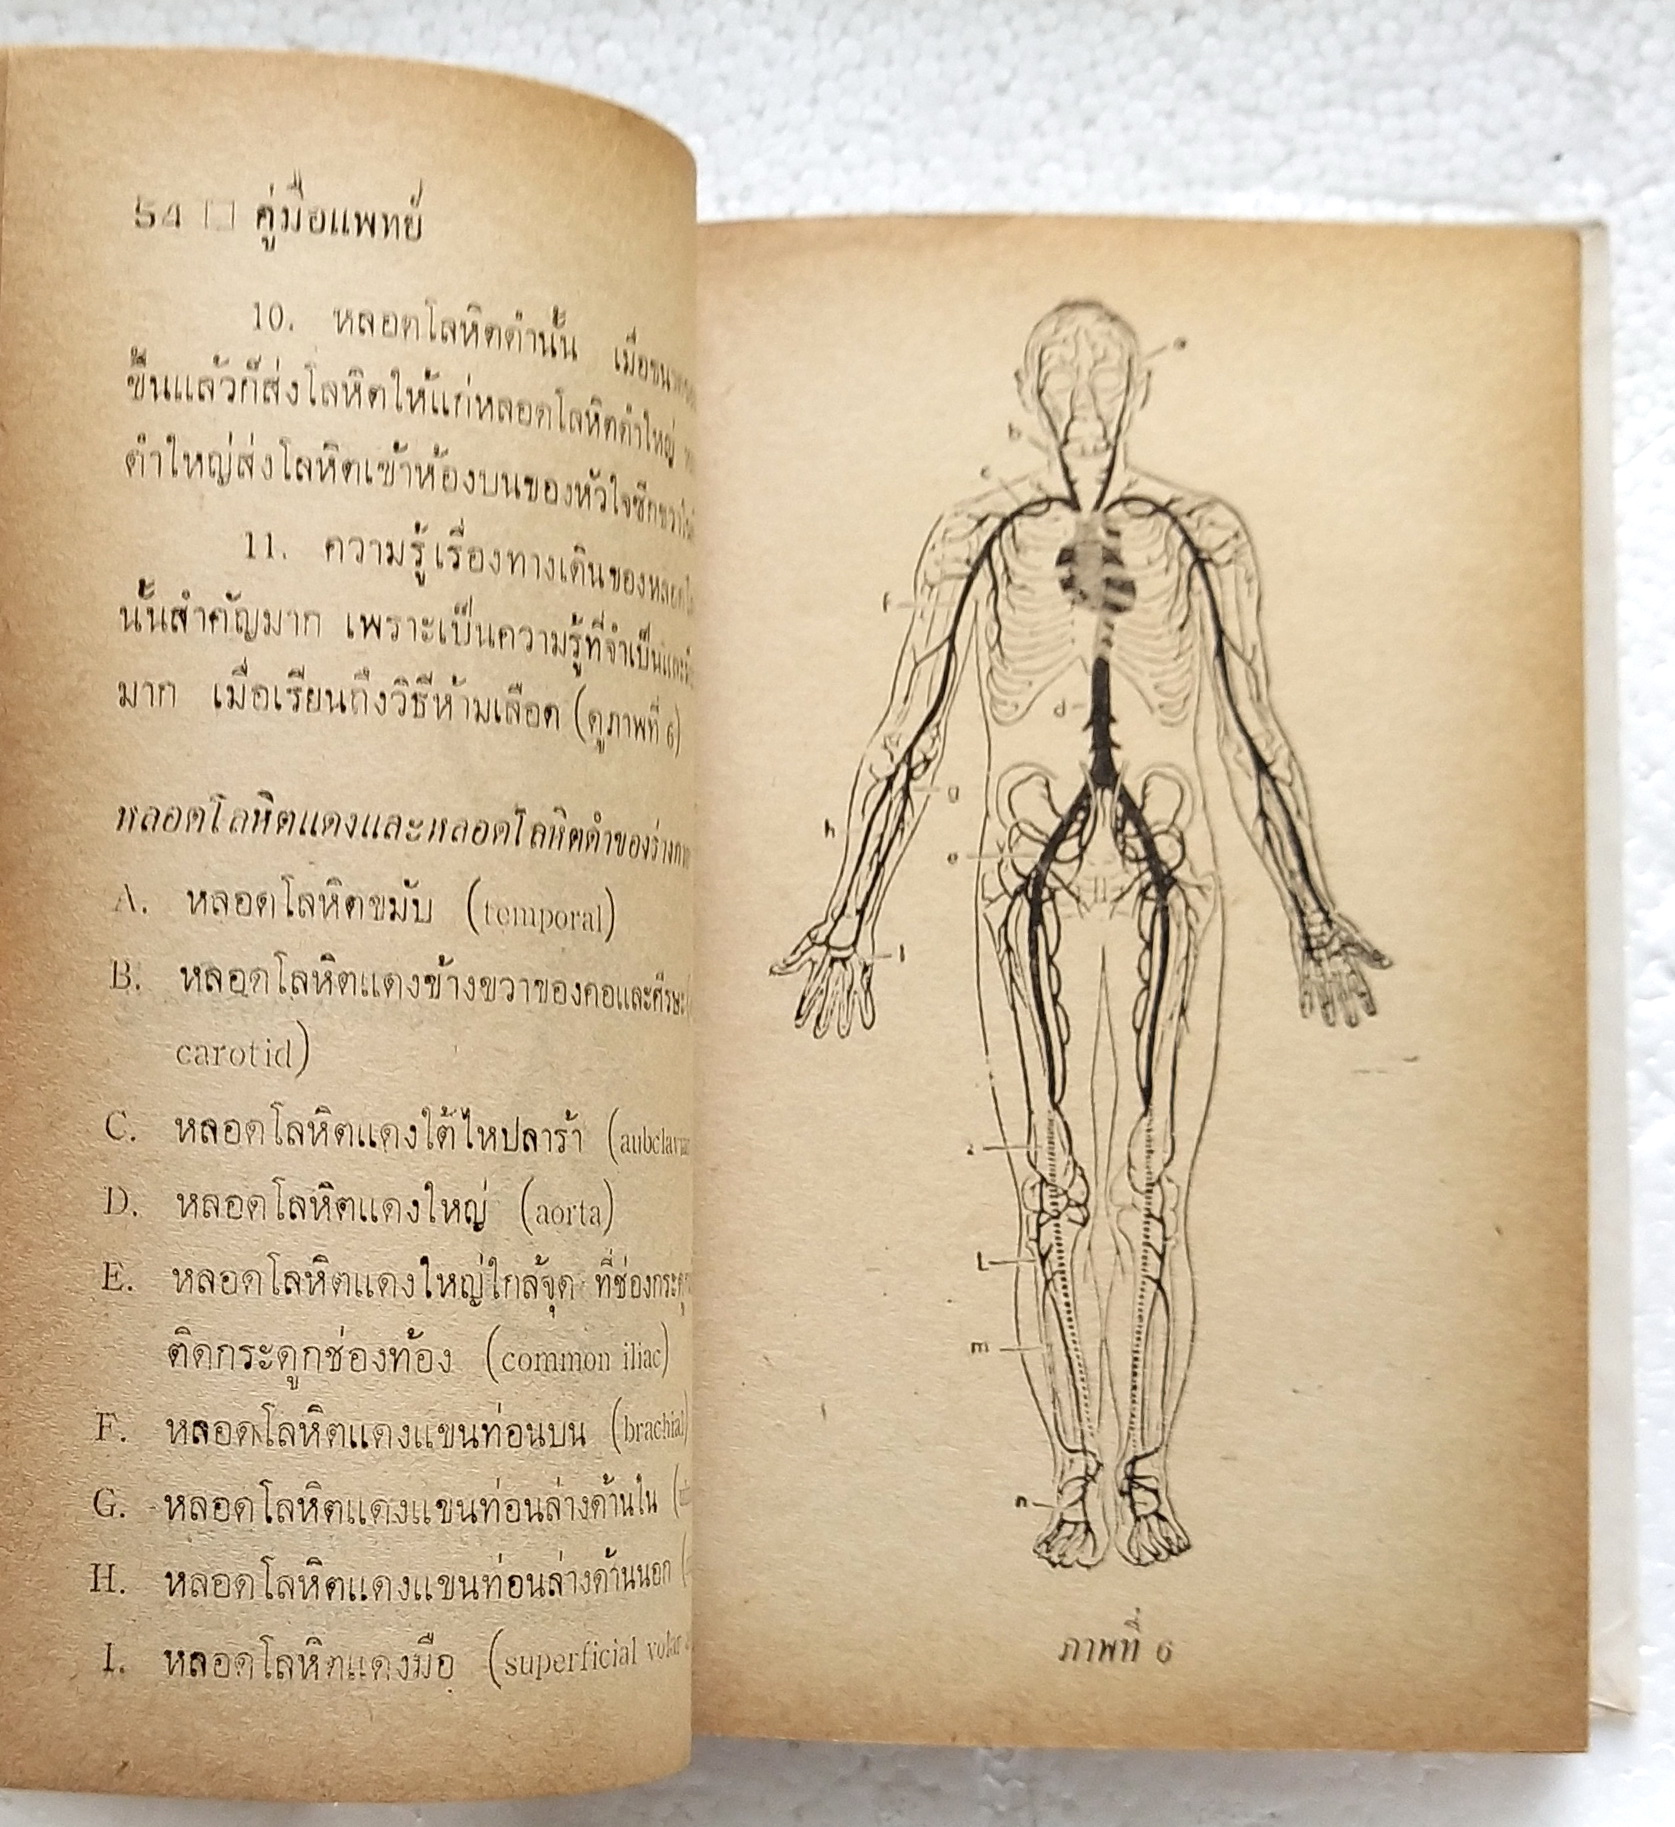 54 คู่มือแพทย์
10. หลอดโลหิตดำนั้น
ขึ้นแล้วก็ส่งโลหิตให้แก่หลอดโลหิตดำใหญ่
ดำใหญ่ส่งโลหิตเข้าห้องบนของหัวใจซีกขวา
11. ความรู้เรื่องทางเดินของ
นั้นสำคัญมาก เพราะเป็นความรู้ที่จำเป็น
มาก เมื่อเรียนถึงวิธีห้ามเลือด (ดูภาพที่ 6)
หลอดโลหิตแดงและหลอดโลหิตดำของ
A. หลอดโลหิตขมับ (temporal)
B. หลอดโลหิตแดงข้างขวาของคอและศีรษะ
carotid)
C. หลอดโลหิตแดงใต้ไหปลาร้า
D. หลอดโลหิตแดงใหญ่ (aorta)
E. หลอดโลหิตแดงใหญ่ใกล้จุด
ติดกระดูกช่องท้อง (common iliac)
F. หลอดโลหิตแดงแขนท่อนบน (brachial)
G. หลอดโลหิตแดงแขนท่อนล่างด้านใน
H. หลอดโลหิตแดงแขนท่อนล่างด้านนอก
I. หลอดโลหิตแดงมือ (superficial
a
b
c
f
d
g
h
e
l
m
n
ภาพที่ 6